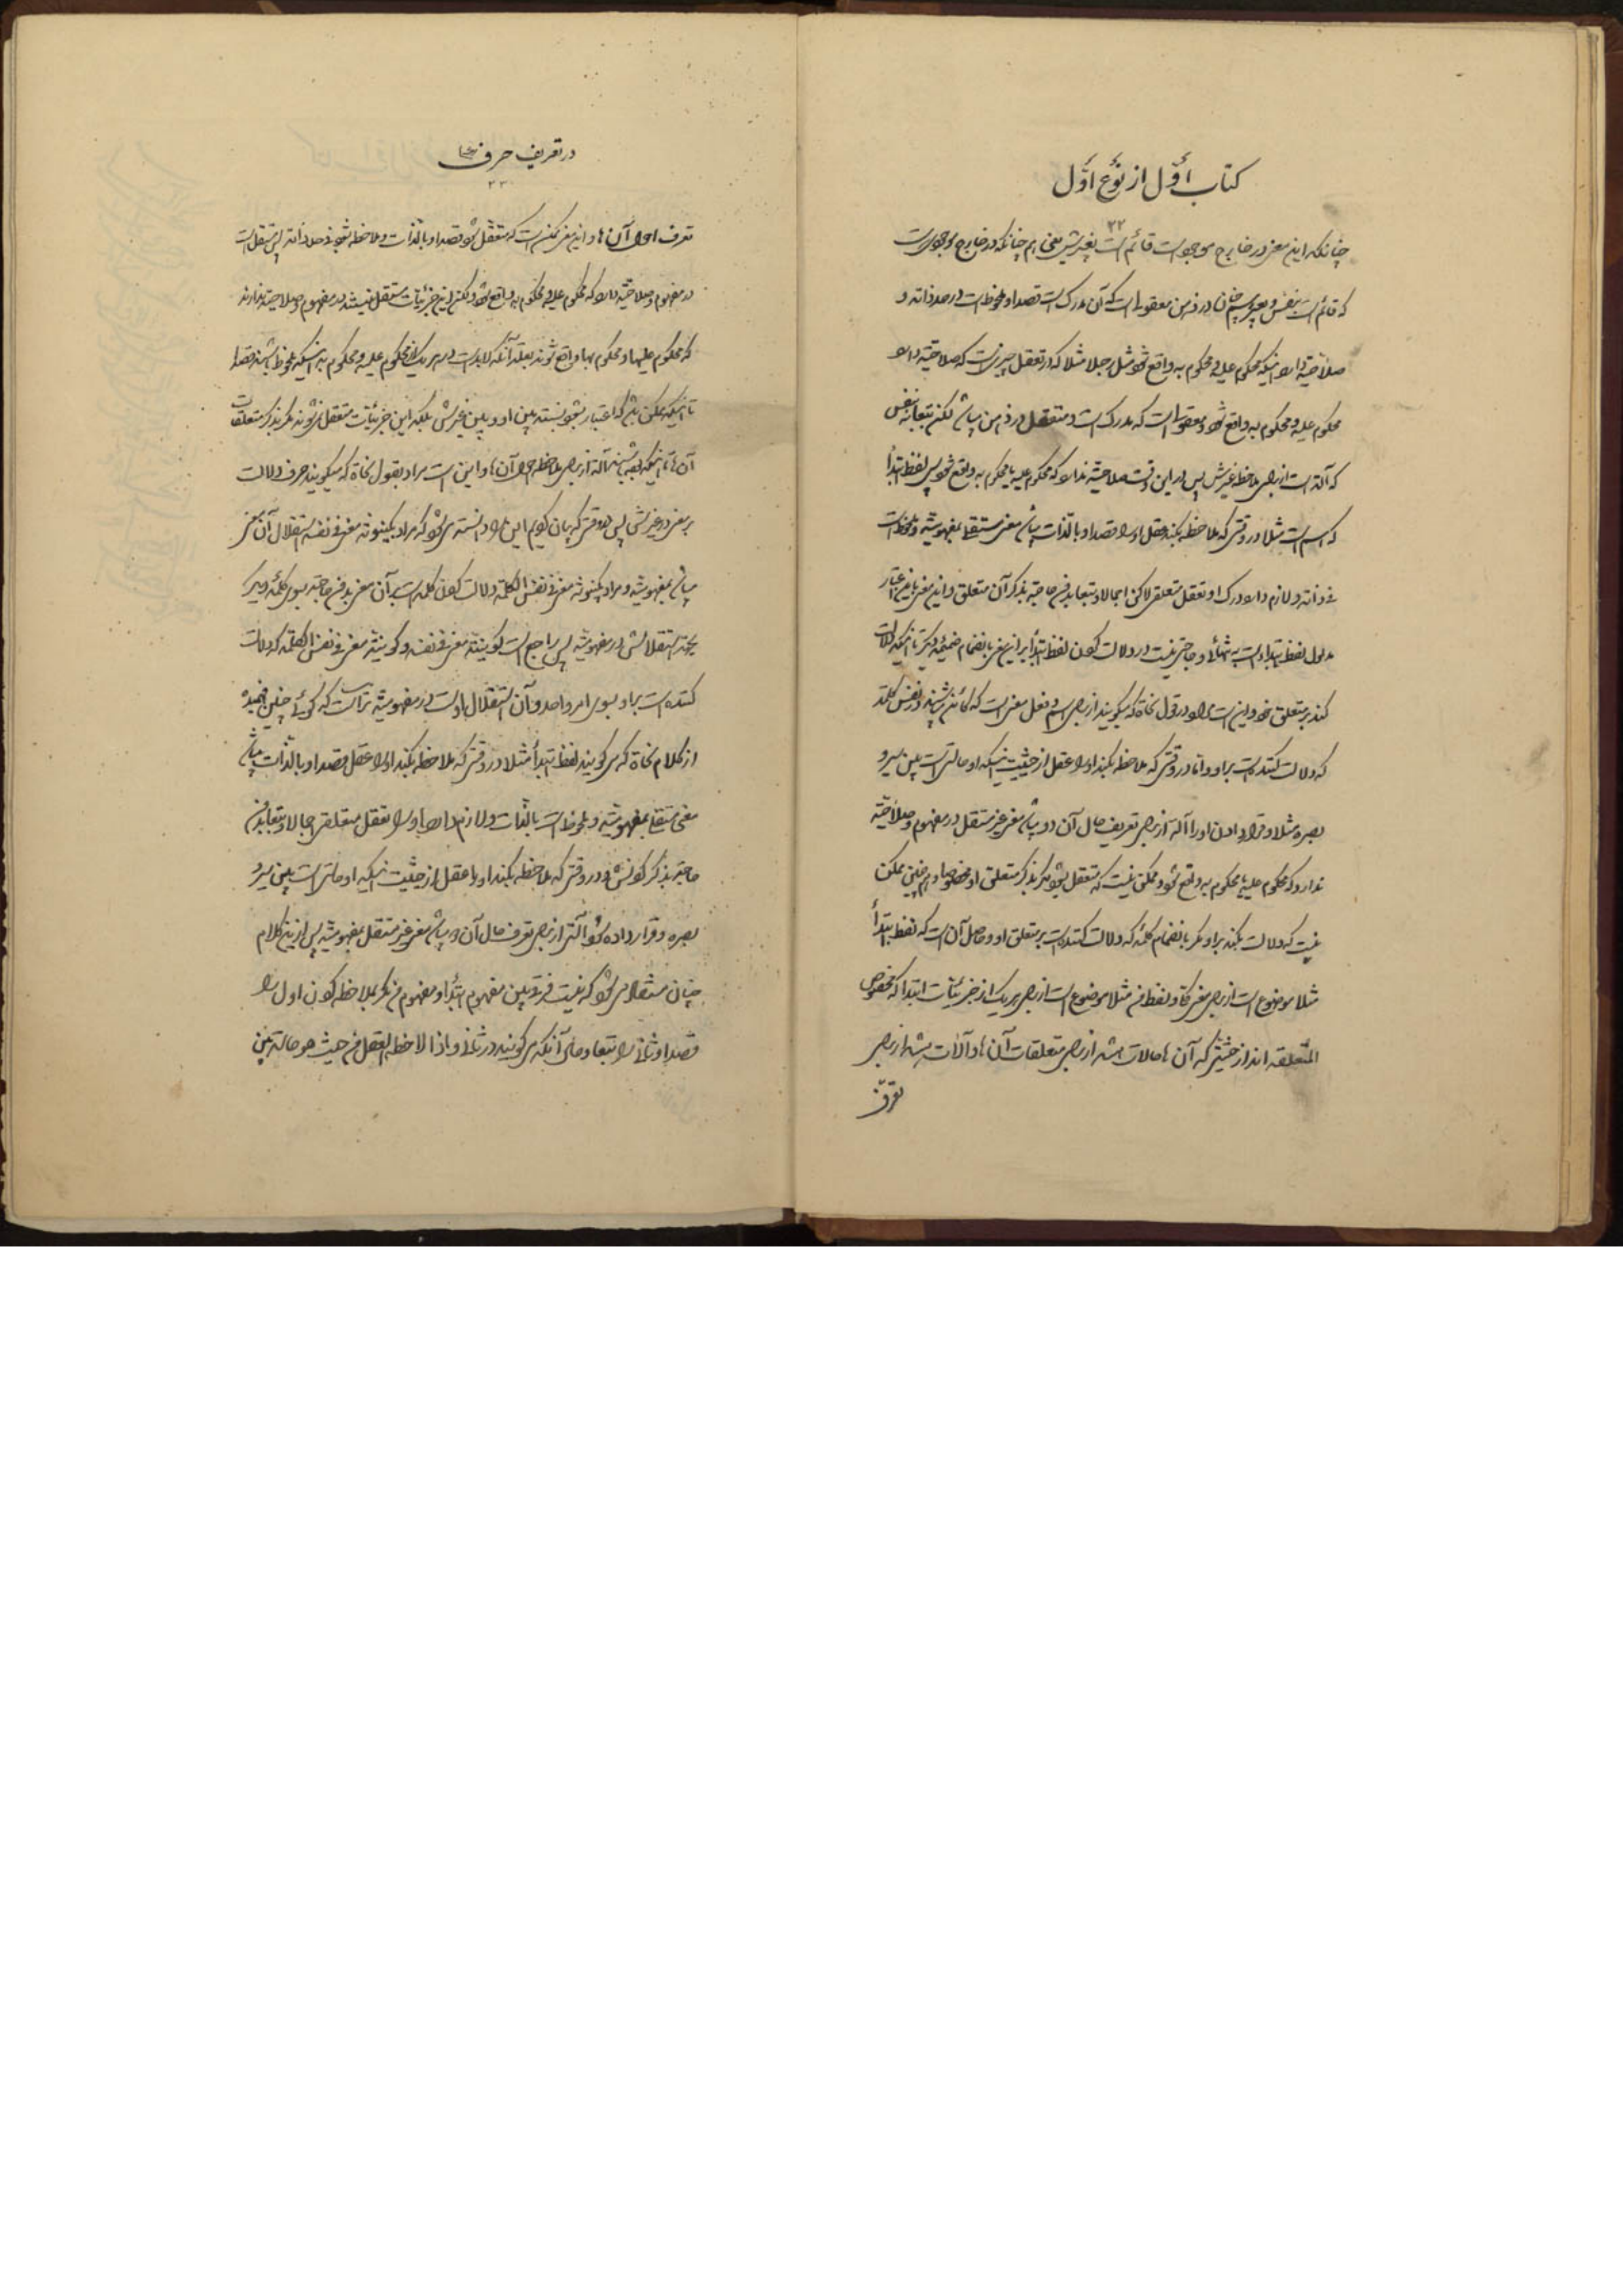 کتاب اوّل از نوع اوّل
۲۲
چنانکه این معنی در خارج موجود است قائم است بغیرش یعنی هم چنانکه در خارج موجودی است
که قائم است بنفس و بغیر هم چنان در ذهن معقول است که آن مدرک است قصدا و ملحوظ است در حد ذاته و
صلاحیّة دارد اینکه محکوم علیه و محکوم به واقع شود مثل رجلا مثلا که در تعقل چیزیست که صلاحیّة دارد
محکوم علیه و محکوم به واقع شود و معقول است که مدرک است و متعقل در ذهن میباشد لکن بتبعا نه بنفس
که آلة است از برای ملاحظه غیرش پس در این وقت صلاحیّة ندارد که محکوم علیه یا محکوم به واقع شود پس لفظ ابتدأ
که اسم است مثلا در وقتی که ملاحظه بکند عقل او را قصدا و بالذات میباشد معنی مستقل بمفهومیّة و ملحوظ است
فی ذاته و لازم دارد درک او تعقل متعلقی لاکن اجمالا و تبعا بدون حاجة بذکر آن متعلق و این معنی باین اعتبار
مدلول لفظ ابتداء است به تنهائی و حاجتی نیست در دلالت کردن لفظ ابتدأ بر این معنی بانضمام ضمیمه دیگر تا اینکه دلالت
کند بر متعلق خود و این است مراد در قول نحاة که میگویند از برای اسم و فعل معنی است که کائن میباشد در نفس کلمة
که دلالت کننده است بر او و اما در وقتی که ملاحظه بکند او را عقل از حیثیت اینکه او حالتی است بین سیر و
بصره مثلا و قرار دادن او را آلة از برای تعریف حال آن دو میباشد معنی غیر مستقل در مفهوم و صلاحیّة
ندارد که محکوم علیه یا محکوم به واقع شود و ممکن نیست که متعقل بشود مگر بذکر متعلق او مخصوصا و هم چنین ممکن
نیست که دلالت بکند بر او مگر بانضمام کلمه که دلالت کننده است بر متعلق او و حاصل آن است که لفظ ابتدأ
مثلا موضوع است از برای معنی کلی و لفظ من مثلا موضوع است از برای هر یک از جزئیات ابتدا که مخصوص
المتعلقه اند از حیثیتی که آن ها حالات باشد از برای متعلقات آن ها و آلات باشد از برای
تعرّف
در تعریف حرف
۲۳
تعرف احوال آن ها و این معنی ممکن است که متعقل شود قصدا و بالذات و ملاحظه شود فی حد ذاته پس مستقل است
در مفهوم و صلاحیّة دارد که محکوم علیه و محکوم به واقع شود و لکن این جزئیات مستقل نیستند در مفهوم و صلاحیة ندارند
که محکوم علیها و محکوم بها واقع شوند بعلة آنکه لابد است در هر یک از محکوم علیه و محکوم به اینکه ملحوظ باشند قصدا
تا اینکه ممکن باشد که اعتبار بشود نسبته بین او و بین غیرش بلکه این جزئیات متعقل نمی شوند مگر بذکر متعلقات
آن ها تا اینکه بوده باشند آلة از برای ملاحظه احوال آن ها و این است مراد بقول نحاة که میگویند حرف دلالت
بر معنی در غیرش پس در وقتی که بیان کردیم این را دانسته می شود که مراد بکینونة معنی فی نفسه استقلال آن معنی
میباشد بمفهومیة و مراد بکینونة معنی فی نفس الکلمة دلالت کردن کلمه است بر آن معنی بدون حاجة بسوی کلمه دیگر
بجهة استقلالش در مفهومیة پس راجع است کینونة معنی فی نفسه و کینونة معنی فی نفس الکلمة که دلالت
کننده است بر او بسوی امر واحد و آن استقلال او است در مفهومیة
از کلام نحاة که می گویند لفظ ابتدأ مثلا در وقتی که ملاحظه بکند او را عقل قصدا و بالذات میباشد
معنی مستقل بمفهومیة و ملحوظ است بالذات و لازم دارد او را تعقل متعلقی اجمالا و تبعا بدون
حاجة بذکر کردنش و در وقتی که ملاحظه بکند او را عقل از حیثیت اینکه او حالتی است بین سیر و
بصره و قرار داده شود آلتی از برای تعرف حال آن دو میباشد معنی غیر مستقل بمفهومیة پس از این کلام
چنان مستفاد می شود که نیست فرق بین مفهوم ابتدأ و مفهوم من مگر بملاحظه کردن اول را
قصدا و ثانی را تبعا و حال آنکه می گویند در ثانی و اذا لاحظه العقل من حیث هو حالة بین